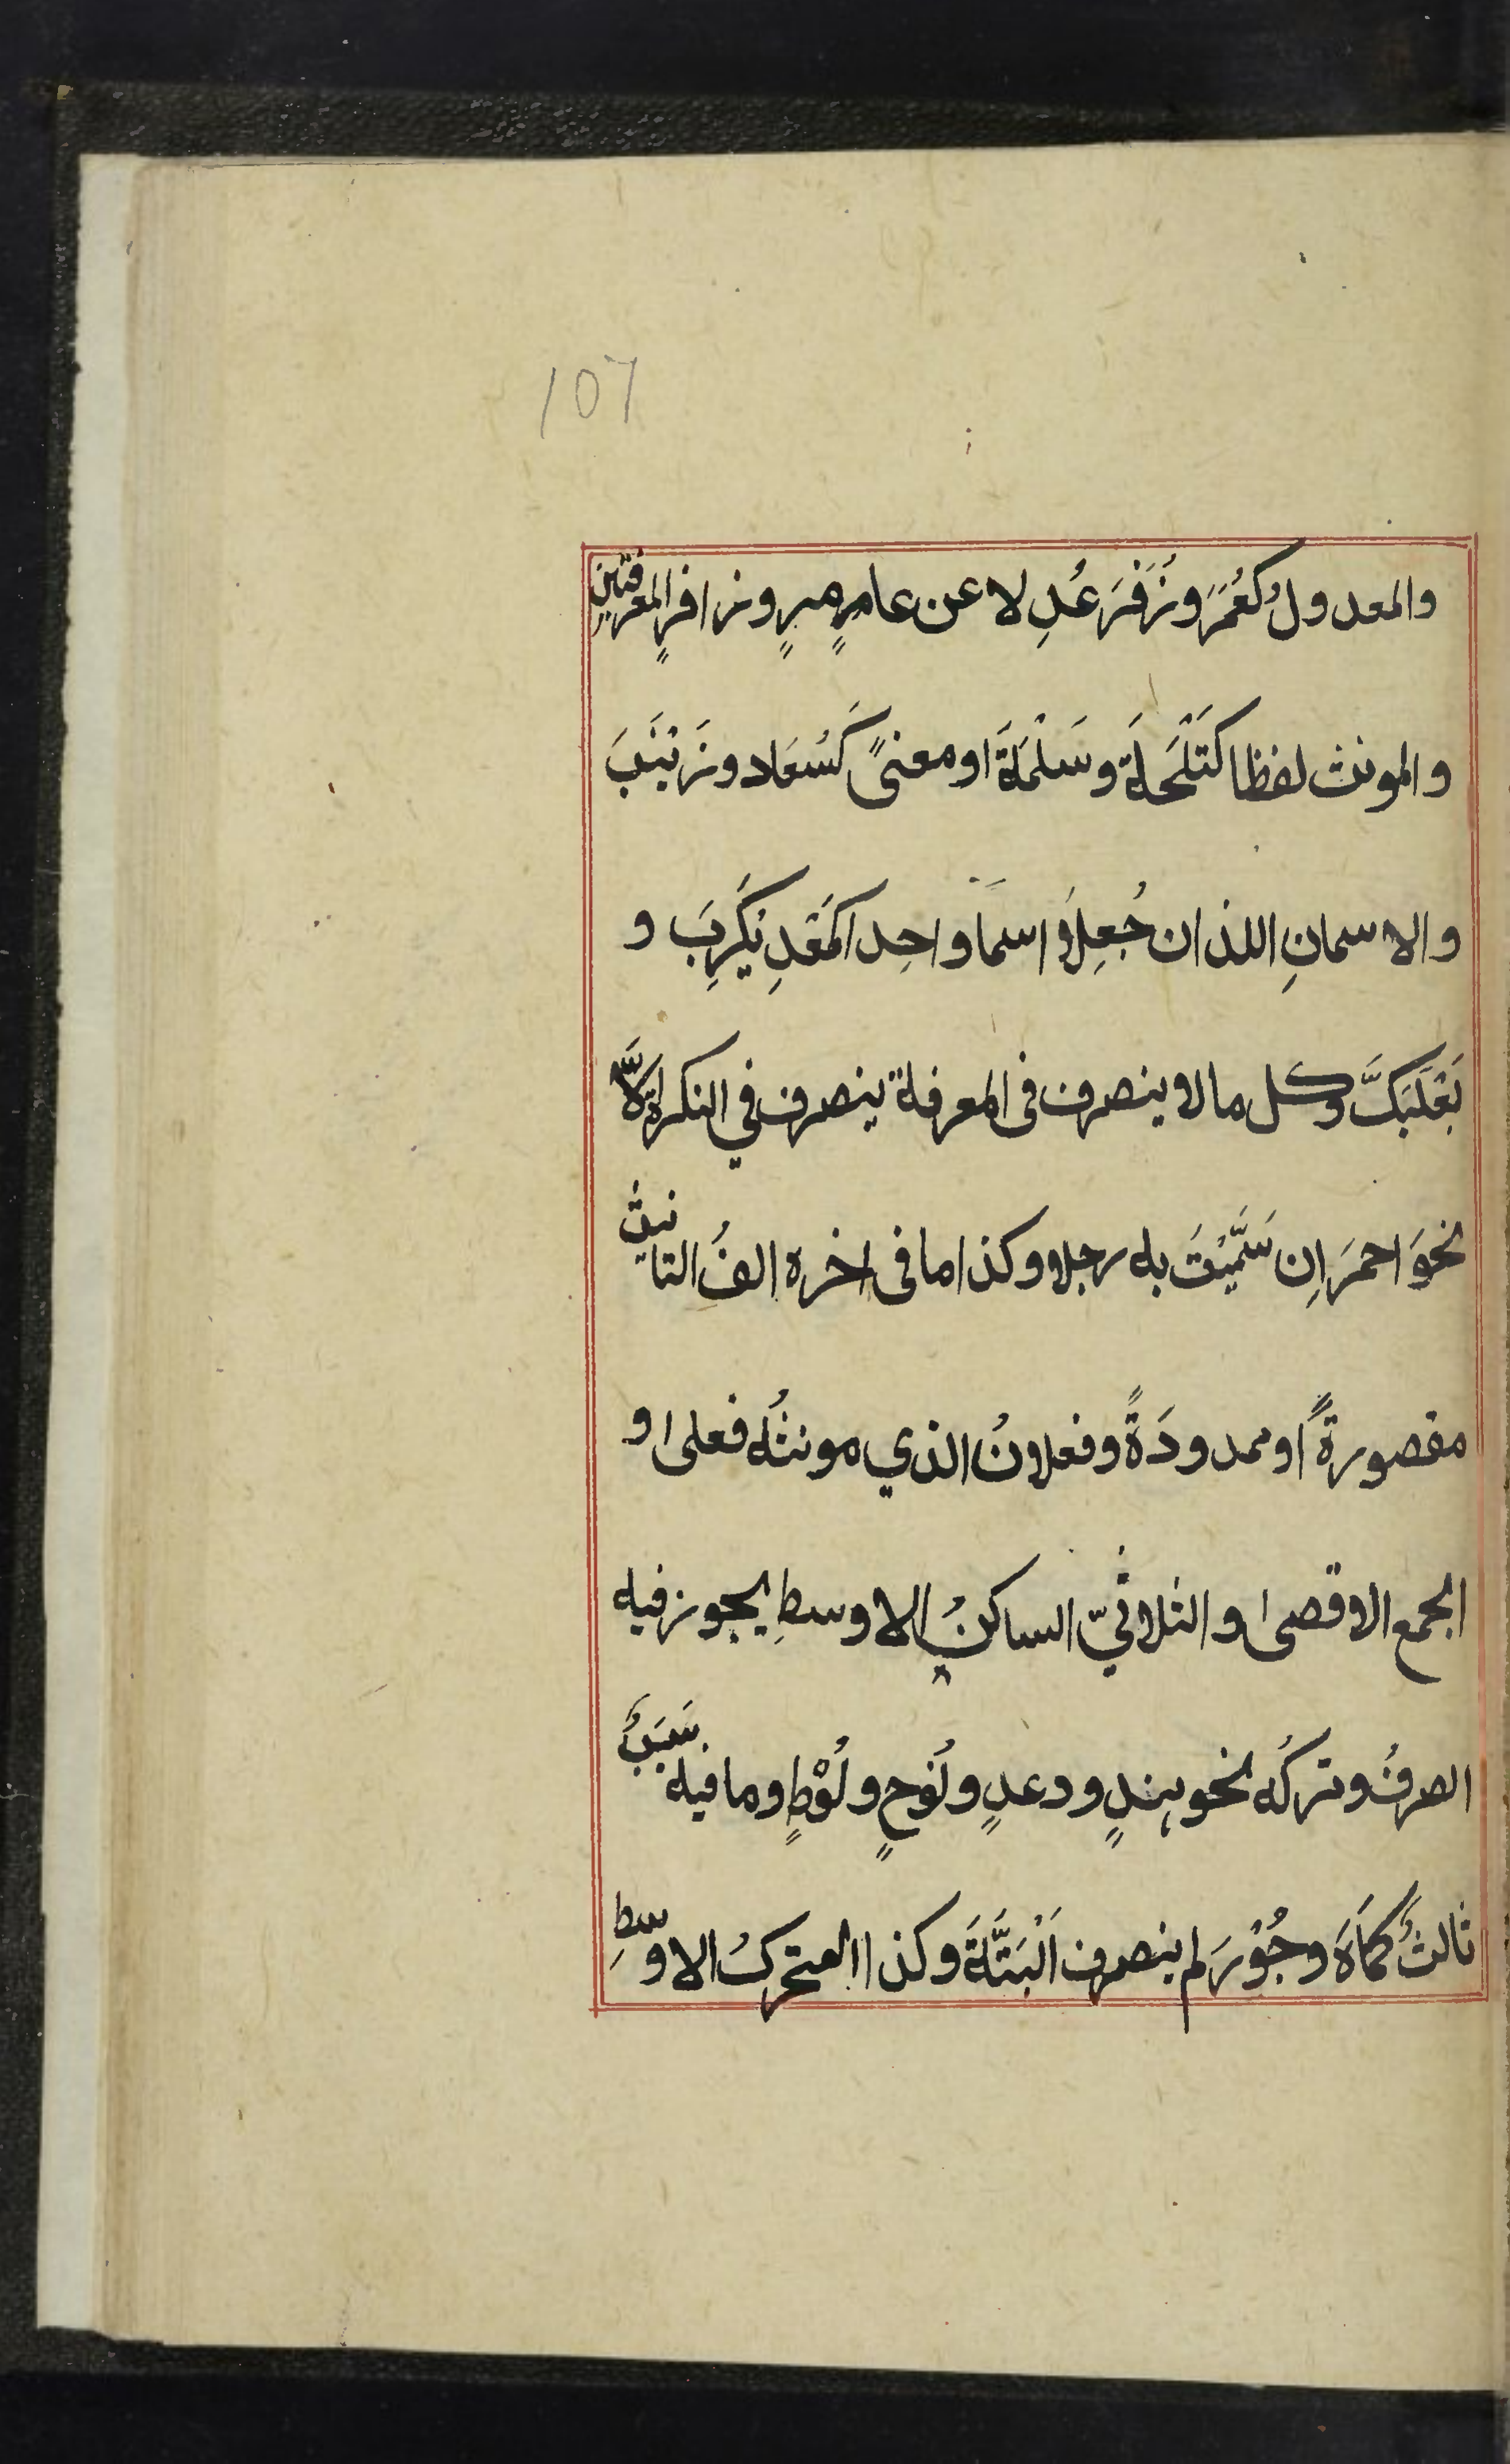 107
والمعدولُ كعُمَرَ وزُفَرَ عُدِلا عن عامرٍ مرٍ وزافرٍ المعرفتينِ
والمونث لفظا كَتَلْحَةَ وسَلْمَةَ او معنىً كَسُعَاد وزَيْنَبَ
والاسمانِ اللذان جُعِلَا اسما واحدا كمَعْدِيكَرِبَ و
بَعْلَبَكَّ وكل مالا ينصرف فى المعرفة ينصرف في النكرة اِلَّا
نحوَ احمَرَ اِن سَمَّيْتَ به رجلا وكذا ما فى اخره الفُ التانيث
مقصورةً او ممدودَةً وفعلانُ الذي مونثُه فعلى او
الجمع الاقصى او الثلاثيّ الساكنُ الاوسطِ يجوز فيه
الصرفُ وتركُه نحو هندٍ ودعدٍ ونُوحٍ ولُوْطٍ وما فيه سَبَبٌ
ثالثٌ كمَاهَ وجُوْرَ لم ينصرف اَلْبَتَّةَ وكذا المتحركُ الاوسطِ